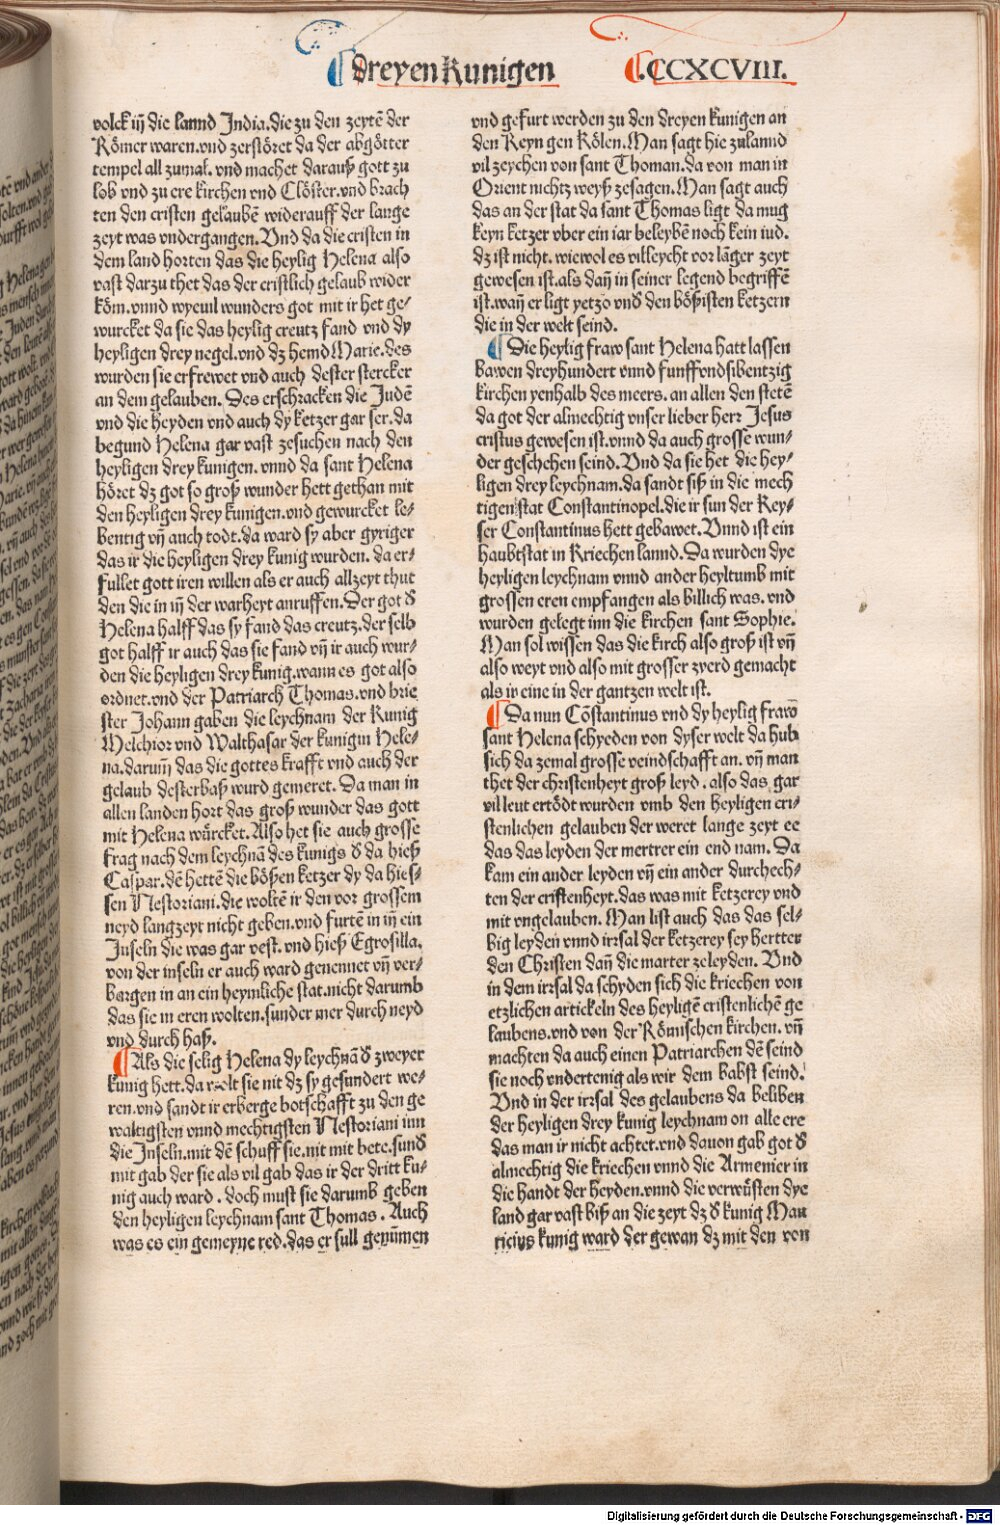 dreyen kunigen
.CCXCVIII.
volck iñ die lannd India. die zu den zeytē der
Römer waren. vnd zerstöret da der abgötter
tempel all zumal. vnd machet darauß gott zu
lob vnd zu ere kirchen vnd Clöster. vnd brach
ten den cristen gelaubē widerauff der lange
zeyt was vndergangen. Vnd da die cristen in
dem land horten das die heylig Helena also
vast darzu thet das der cristlich gelaub wider
köm. vnnd wyeuil wunders got mit ir het ge⸗
wurcket da sie das heylig creutz fand vnd dy
heyligen drey negel. vnd dz hemd Marie. des
wurden sie erfrewet vnd auch dester stercker
an dem gelauben. Des erschracken die Judē
vnd die heyden vnd auch dy ketzer gar ser. da
begund Helena gar vast zesuchen nach den
heyligen drey kunigen. vnnd da sant Helena
höret dz got so groß wunder hett gethan mit
den heyligen drey kunigen. vnd gewurcket le⸗
bentig vñ auch todt. da ward sy aber gyriger
das ir die heyligen drey kunig wurden. da er⸗
fullet gott iren willen als er auch allzeyt thut
den die in iñ der warheyt anruffen. Der got d̄
Helena halff das sy fand das creutz. der selb
got halff ir auch das sie fand vñ ir auch wur⸗
den die heyligen drey kunig. wann es got also
ordnet. vnd der Patriarch Thomas. vnd brie
ster Johann gaben die leychnam der Kunig
Melchior vnd Walthasar der kunigin Hele⸗
na. darum̄ das die gottes krafft vnd auch der
gelaub desterbaß wurd gemeret. Da man in
allen landen hort das groß wunder das gott
mit Helena würcket. Also het sie auch grosse
frag nach dem leychnā des kunigs d̄ da hieß
Caspar. dē hettē die bößen ketzer dy da hies⸗
sen Nestoriani. die woltē ir den vor grossem
neyd langzeyt nicht geben. vnd furtē in iñ ein
Inseln die was gar vest. vnd hieß Egrosilla.
von der inseln er auch ward genennet vñ ver⸗
bargen in an ein heymliche stat. nicht darumb
das sie in eren wolten. sunder mer durch neyd
vnd durch haß.
Als die selig Helena dy leychnā d̄ zweyer
kunig hett. da wolt sie nit dz sy gesundert we⸗
ren. vnd sandt ir erberge botschafft zu den ge
waltigsten vnnd mechtigsten Nestoriani inn
die Inseln. mit dē schuff sie. nit mit bete. sund̄
mit gab der sie als vil gab das ir der dritt ku⸗
nig auch ward. doch must sie darumb geben
den heyligen leychnam sant Thomas. Auch
was es ein gemeyne red. das er sull genūmen
vnd gefurt werden zu den dreyen kunigen an
den Reyn gen Kölen. Man sagt hie zulannd
vil zeychen von sant Thoman. da von man in
Orient nichtz weyß zesagen. Man sagt auch
das an der stat da sant Thomas ligt da mug
keyn ketzer vber ein iar beleybē noch kein iud.
dz ist nicht. wiewol es villeycht vor lāger zeyt
gewesen ist. als dañ in seiner legend begriffē
ist. wañ er ligt yetzo vnd̄ den bößisten ketzern
die in der welt seind.
Die heylig fraw sant Helena hatt lassen
bawen dreyhundert vnnd funffvndsibentzig
kirchen yenhalb des meers. an allen den stetē
da got der almechtig vnser lieber herr Jesus
cristus gewesen ist. vnnd da auch grosse wun⸗
der geschehen seind. Vnd da sie het die hey⸗
ligen drey leychnam. da sandt siß in die mech
tigen stat Constantinopel. die ir sun der Key⸗
ser Constantinus hett gebawet. Vnnd ist ein
haubtstat in Kriechen lannd. Da wurden dye
heyligen leychnam vnnd ander heyltumb mit
grossen eren empfangen als billich was. vnd
wurden gelegt inn die kirchen sant Sophie.
Man sol wissen das die kirch also groß ist vñ
also weyt vnd also mit grosser zyerd gemacht
als ir eine in der gantzen welt ist.
Da nun Cōstantinus vnd dy heylig fraw
sant Helena schyeden von dyser welt da hub
sich da zemal grosse veindschafft an. vñ man
thet der christenheyt groß leyd. also das gar
vil leut ertödt wurden vmb den heyligen cri⸗
stenlichen gelauben der weret lange zeyt ee
das das leyden der mertrer ein end nam. Da
kam ein ander leyden vñ ein ander durchech⸗
ten der cristenheyt. das was mit ketzerey vnd
mit vngelauben. Man list auch das das sel⸗
big leyden vnnd irrsal der ketzerey sey hertter
den Christen dañ die marter zeleyden. Vnd
in dem irrsal da schyden sich die kriechen von
etzlichen artickeln des heyligē cristenlichē ge
laubens. vnd von der Römischen kirchen. vñ
machten da auch einen Patriarchen dē seind
sie noch vndertenig als wir dem babst seind.
Vnd in der irrsal des gelaubens da beliben
der heyligen drey kunig leychnam on alle ere
das man ir nicht achtet. vnd dauon gab got d̄
almechtig die kriechen vnnd die Armenier in
die handt der heyden. vnnd die verwüsten dye
land gar vast biß an die zeyt dz d̄ kunig Mau
ricius kunig ward der gewan dz mit den von
Digitalisierung gefördert durch die Deutsche Forschungsgemeinschaft - DFG